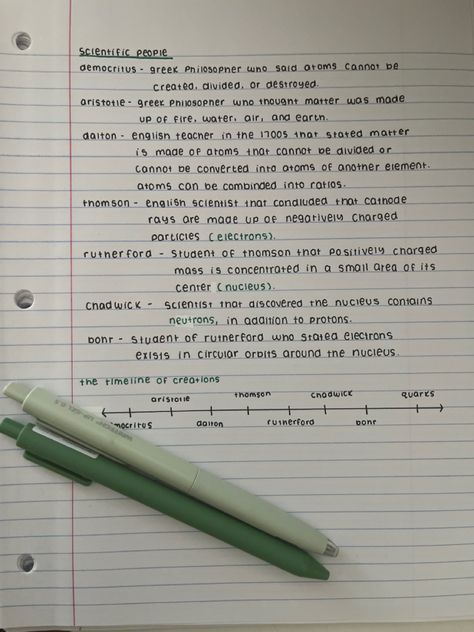 scientific people
democritus - greek philosopher who said atoms cannot be
created, divided, or destroyed.
aristotle - greek philosopher who thought matter was made
up of fire, water, air, and earth.
dalton - english teacher in the 1700s that stated matter
is made of atoms that cannot be divided or
cannot be converted into atoms of another element.
atoms can be combinded into ratios.
thomson - english scientist that concluded that cathode
rays are made up of negatively charged
particles (electrons).
rutherford - student of thomson that positively charged
mass is concentrated in a small area of its
center (nucleus).
chadwick - scientist that discovered the nucleus contains
neutrons, in addition to protons.
bohr - student of rutherford who stated electrons
exists in circular orbits around the nucleus.
the timeline of creations
aristotle thomson chadwick quarks
mocritus dalton rutherford bohr